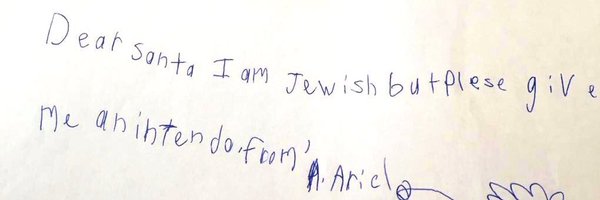 Dear santa I am Jewish but plese give
me anintendo. from'
A. Ariel